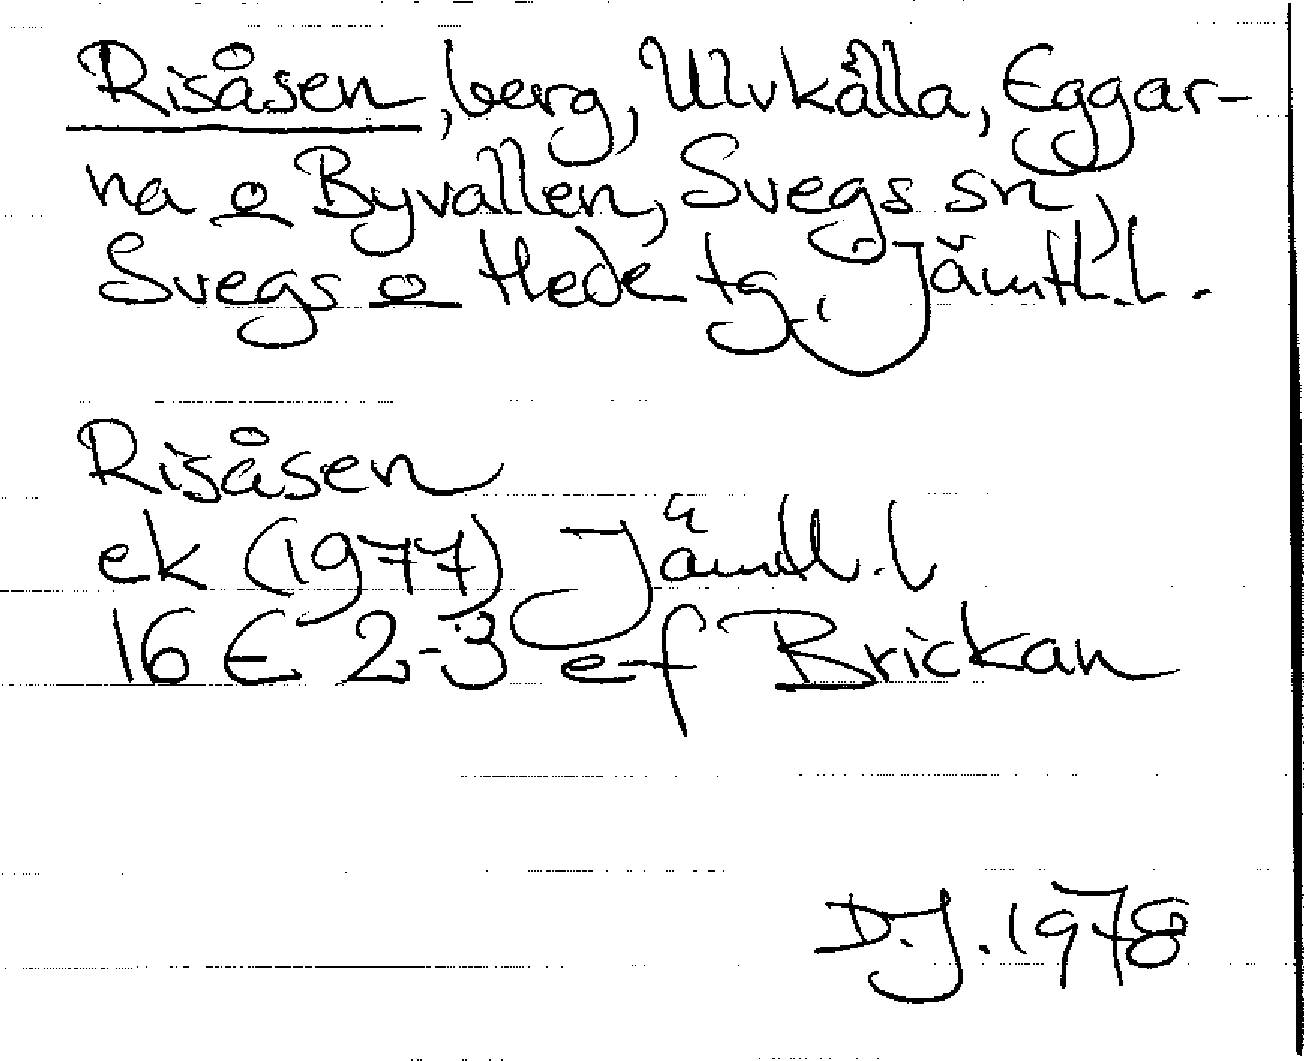 Risåsen, berg, Ulvkälla, Eggar-
na o Byvallen, Svegs sn,
Svegs o Hede tg, Jämtl.l.
Risåsen
ek (1977) Jämtl.l
16 E 2-3 e-f Brickan
D.J. 1978